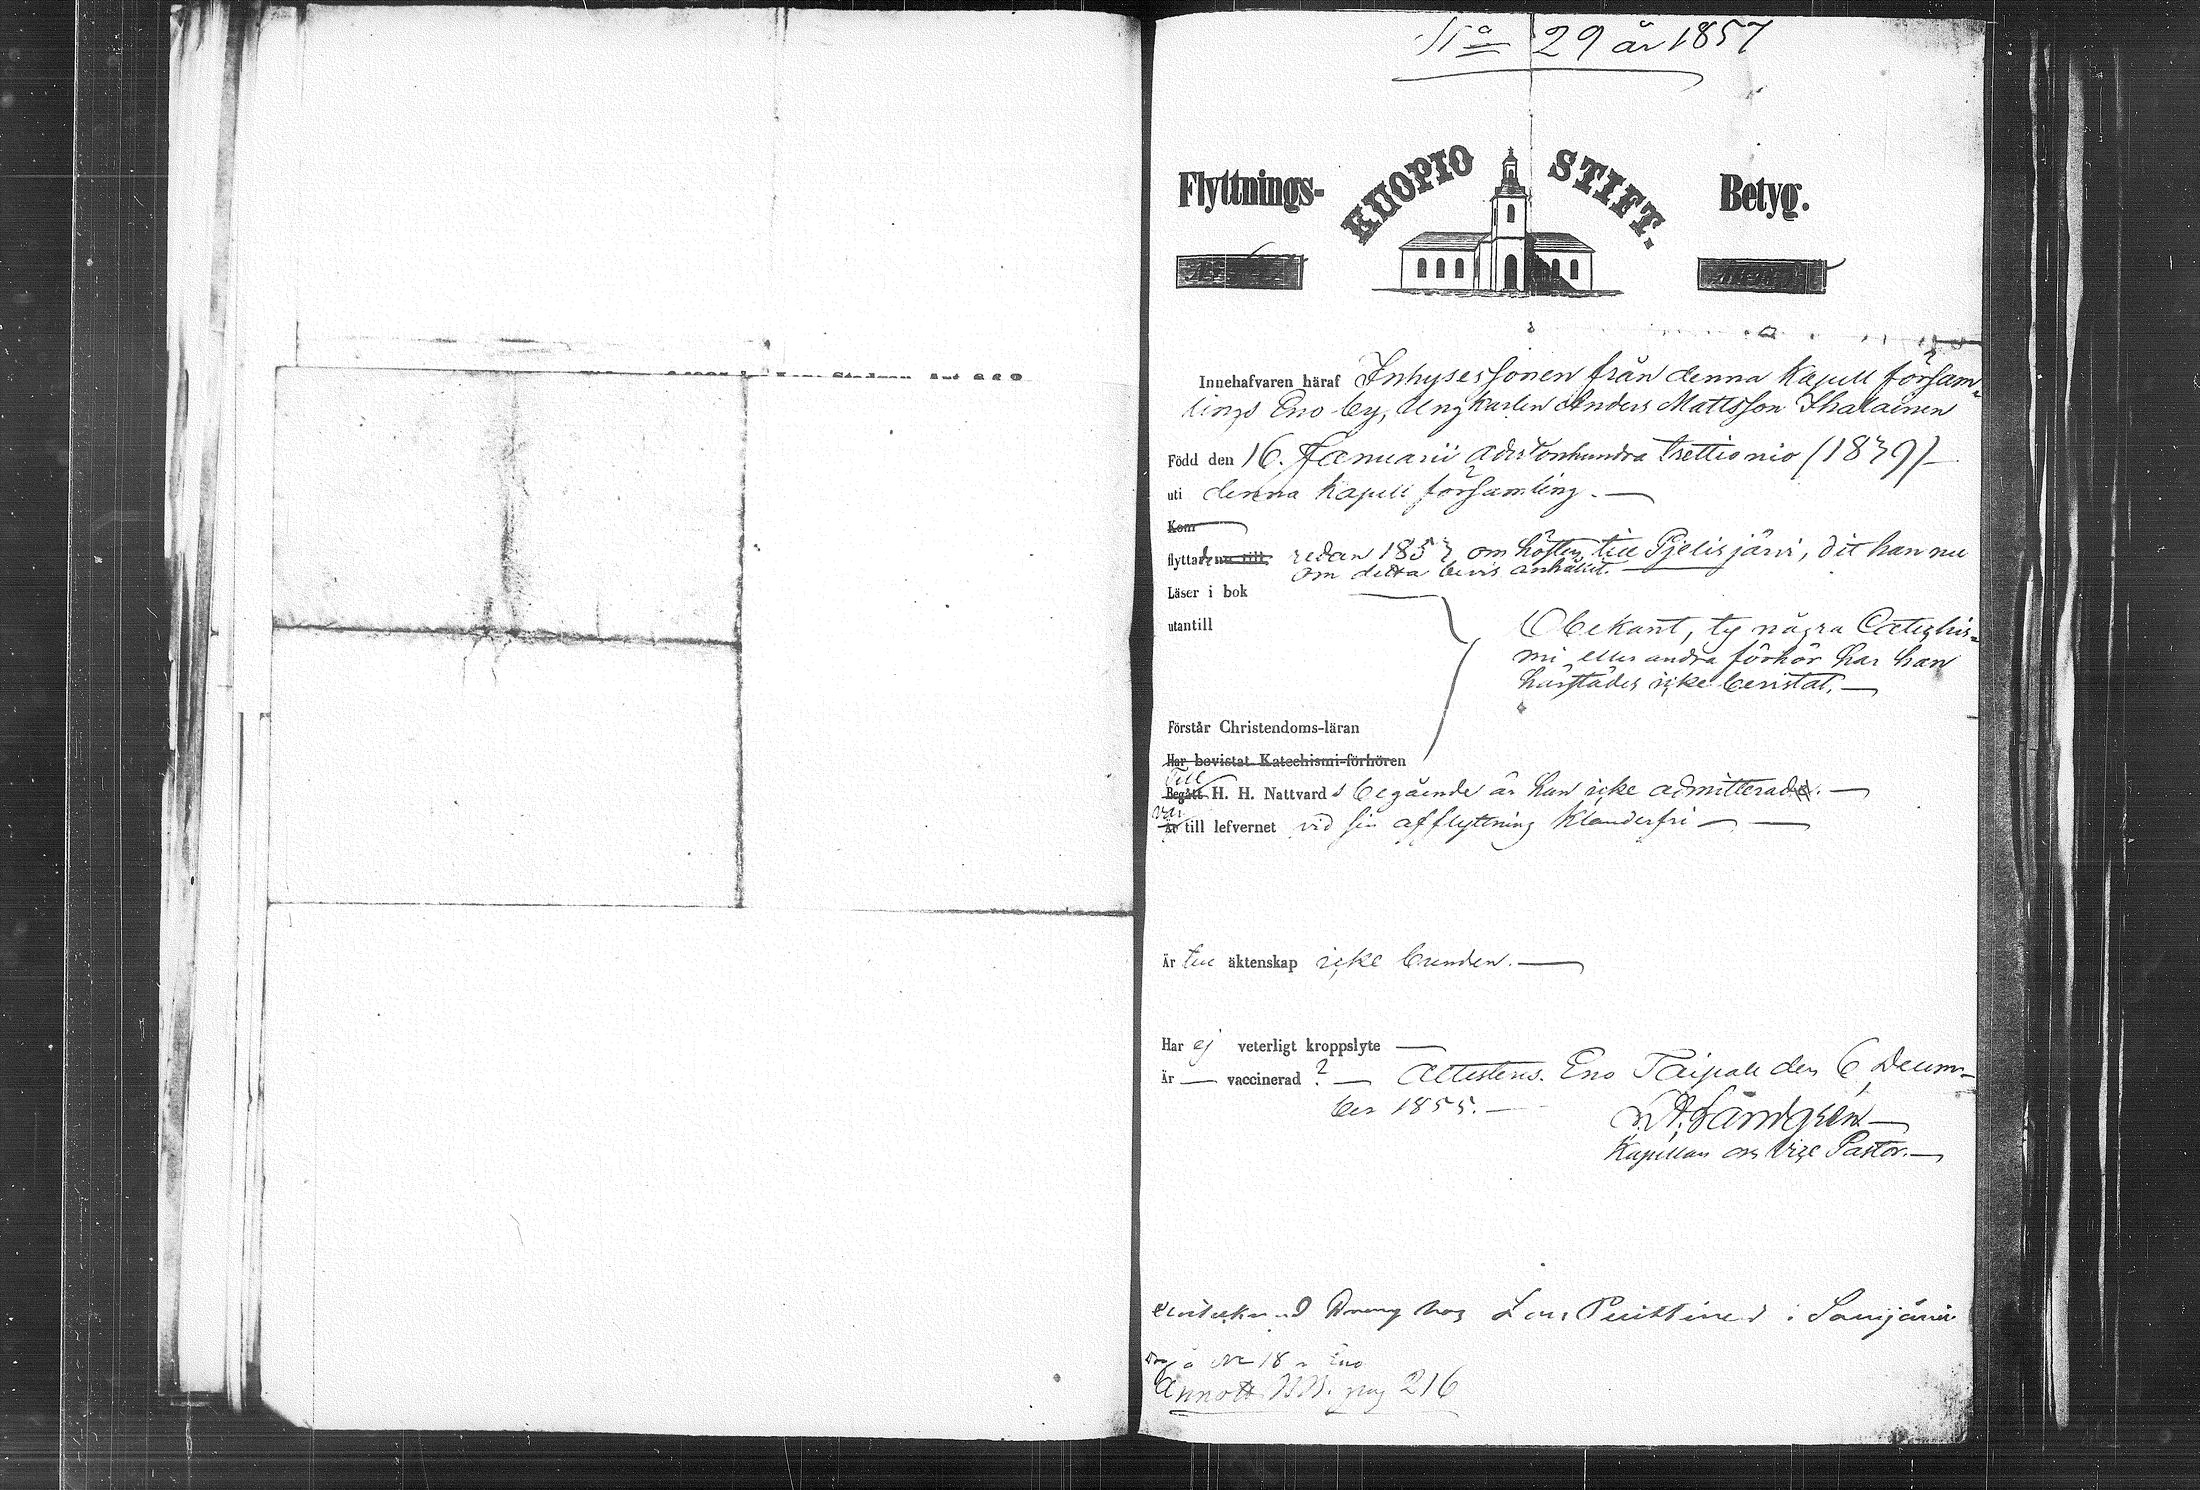 No 29 år 1857
Flyttnings- KUOPIO STIFT. Betyg.
Innehafvaren häraf Inhysessonen från denna Kapell försam-
lings Eno by, Ungkarlen Anders Mattsson Ihalainen
Född den 16. Januarii adertonhundra trettionio (1839)
uti denna Kapell församling.
Kom
flyttade redan 1853 om hösten till Pjelisjärvi, dit han nu
om detta bevis anhållit.
Läser i bok
utantill
Obekant, ty några Catechis-
mi eller andra förhör har han
härstädes icke bevistat.
Förstår Christendoms-läran
Har bevistat Katechismi-förhören
Till
Begått H. H. Nattvards begående är han icke admitterad.
var
Är till lefvernet vid sin afflyttning klanderfri
Är till äktenskap icke bunden.
Har ej veterligt kroppslyte
Är vaccinerad ? Attesteras. Eno Taipale den 6 Decem-
ber 1855.
Kapellan och Vice Pastor.
Dräng hos Lars i
No 18 Eno
Annott. pag 216